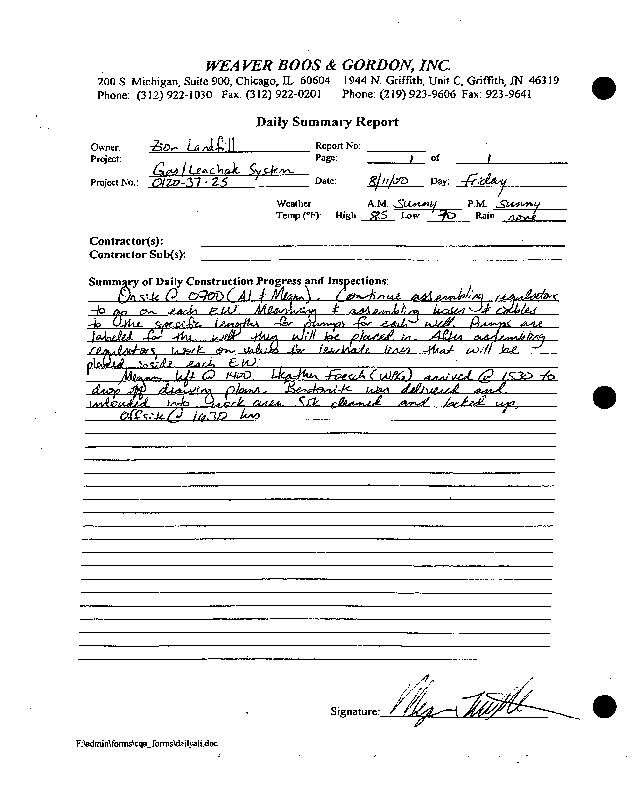 WEAVER BOOS & GORDON, INC.
200 S. Michigan, Suite 900, Chicago, IL 60604 1944 N. Griffith, Unit C, Griffith, IN 46319
Phone: (312) 922-1030 Fax: (312) 922-0201 Phone: (219) 923-9606 Fax: 923-9641
Daily Summary Report
Owner: Zion Landfill Report No:
Project: Gas/Leachate System Page: 1 of 1
Project No.: 0120-37-25 Date: 8/11/00 Day: Friday
Weather A.M. Sunny P.M. Sunny
Temp (°F): High 85 Low 70 Rain none
Contractor(s):
Contractor Sub(s):
Summary of Daily Construction Progress and Inspections:
Onsite @ 0700 (Al & Megan). Continue assembling regulators
to go on each E.W. Measuring & assembling hoses & cables
to the specific lengths for pumps for each well. Pumps are
labeled for the well they will be placed in. After assembling
regulators, work on valves for leachate lines that will be
placed inside each E.W.
Megan left @ 1400 Heather (WBG) arrived @ 1530 to
drop off drawing plans. Bentonite was delivered and
into work area. Site cleaned and locked up.
Offsite @ 1630 hrs
Signature:
F:\admin\forms\cqa_forms\dailyali.doc